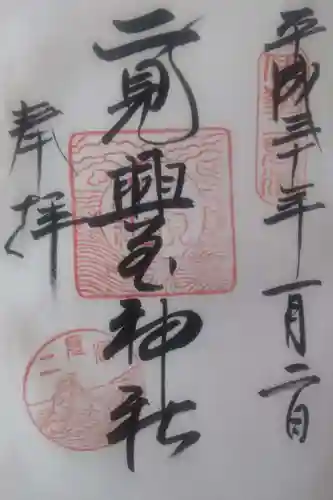 平成三十年一月二日
二見興玉神社
奉拝